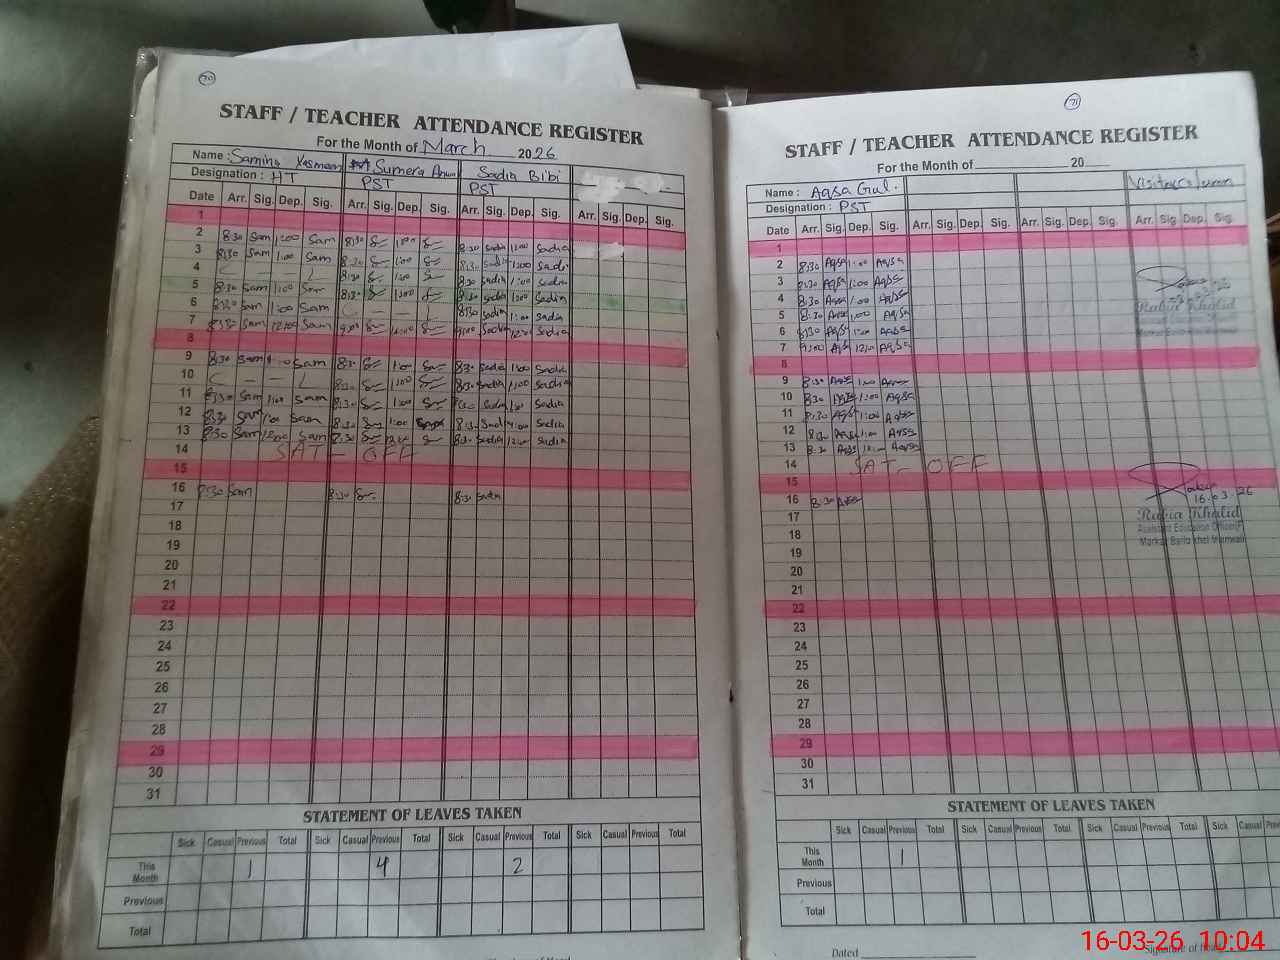 70
STAFF / TEACHER ATTENDANCE REGISTER
For the Month of March 2026
Name : Samina Yasmeen Sumera Sadia Bibi
Designation : HT PST PST
Date Arr. Sig. Dep. Sig. Arr. Sig. Dep. Sig. Arr. Sig. Dep. Sig. Arr. Sig. Dep. Sig.
1
2 8:30 Sam 1:00 Sam 8:30 1:00 8:30 Sadia 1:00 Sadia
3 8:30 Sam 1:00 Sam 8:30 1:00 8:30 Sadia 1:00 Sadia
4 C — — L 8:30 1:00 8:30 Sadia 1:00 Sadia
5 8:30 Sam 1:00 Sam 8:30 1:00 8:30 Sadia 1:00 Sadia
6 8:30 Sam 1:00 Sam C — — L 8:30 Sadia 1:00 Sadia
7 8:30 Sam 12:00 Sam 9:00 12:00 9:00 Sadia 12:00 Sadia
8
9 8:30 Sam 1:00 Sam 8:30 1:00 8:30 Sadia 1:00 Sadia
10 C — — L 8:30 1:00 8:30 Sadia 1:00 Sadia
11 8:30 Sam 1:00 Sam 8:30 1:00 8:30 Sadia 1:00 Sadia
12 8:30 Sam 1:00 Sam 8:30 1:00 8:30 Sadia 1:00 Sadia
13 8:30 Sam 12:00 Sam 8:30 12:00 8:30 Sadia 12:00 Sadia
14 SAT - OFF
15
16 8:30 Sam 8:30 8:30 Sadia
17
18
19
20
21
22
23
24
25
26
27
28
29
30
31
STATEMENT OF LEAVES TAKEN
Sick Casual Previous Total Sick Casual Previous Total Sick Casual Previous Total Sick Casual Previous Total
This Month 1 4 2
Previous
Total
71
STAFF / TEACHER ATTENDANCE REGISTER
For the Month of 20
Name : Aqsa Gul. Visitor Column
Designation : PST
Date Arr. Sig. Dep. Sig. Arr. Sig. Dep. Sig. Arr. Sig. Dep. Sig. Arr. Sig. Dep. Sig.
1
2 8:30 Aqsa 1:00 Aqsa
3 8:30 Aqsa 1:00 Aqsa
4 8:30 Aqsa 1:00 Aqsa
5 8:30 Aqsa 1:00 Aqsa
Rabia Khalid
6 8:30 Aqsa 1:00 Aqsa
7 9:00 Aqsa 12:00 Aqsa
8
9 8:30 Aqsa 1:00 Aqsa
10 8:30 Aqsa 1:00 Aqsa
11 8:30 Aqsa 1:00 Aqsa
12 8:30 Aqsa 1:00 Aqsa
13 8:30 Aqsa 12:00 Aqsa
14 SAT - OFF
15
16 8:30 Aqsa 16.03.26
17 Rabia Khalid
Assistant Education Officer(F)
18
19
20
21
22
23
24
25
26
27
28
29
30
31
STATEMENT OF LEAVES TAKEN
Sick Casual Previous Total Sick Casual Previous Total Sick Casual Previous Total Sick Casual
This Month 1
Previous
Total
Dated
Signature of
16-03-26 10:04